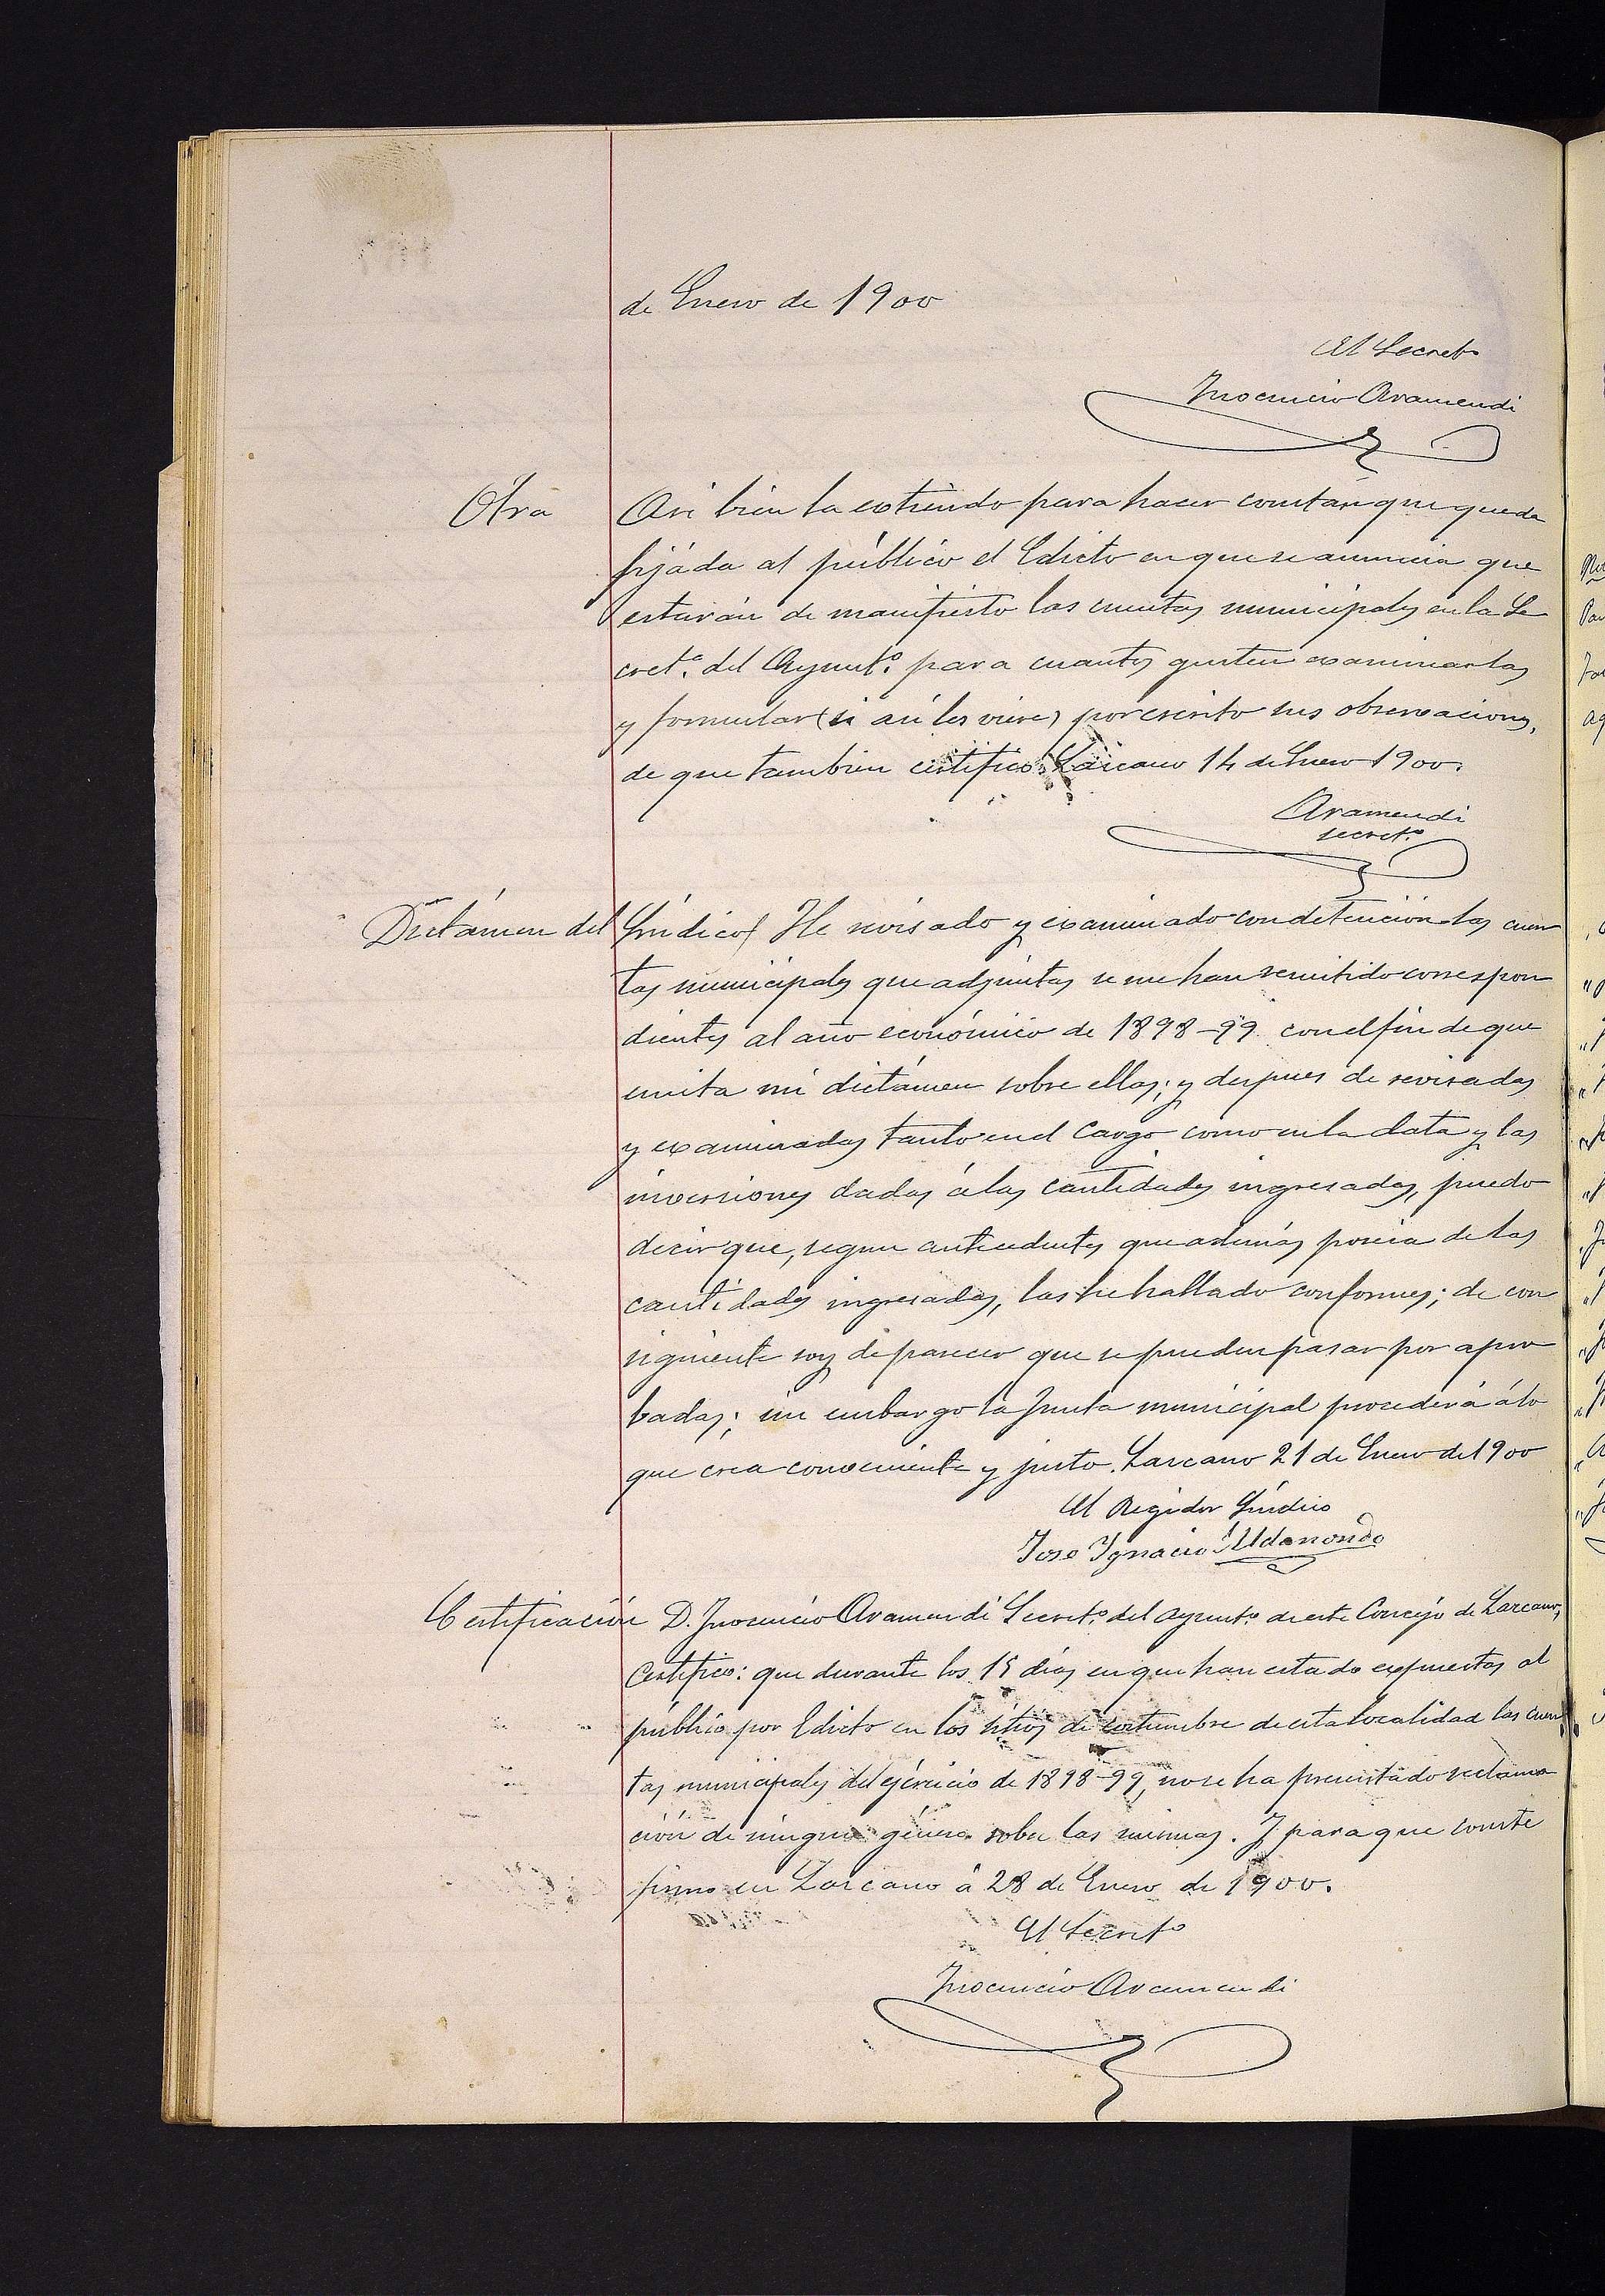 de Enero de 1900
El Secret.o
Inocencio Aramendi
Otra
Asi bien la extiendo para hacer constar que queda
fijada al público el Edicto en que se anuncia que
estarán de manifiesto las cuentas municipales en la Se
cret.a del Ayunt.o para cuantos gusten examinarlas
y formular (si asi les viere) por escrito sus observaciones,
de que tambien certifico. Lazcano 14 de Enero 1900.
Aramendi
secret.o
Dictámen del Síndico} He revisado y examinado con detencion las cuen
tas municipales que adjuntas se me han remitido correspon
dientes al año económico de 1898-99 con el fin de que
emita mi dictámen sobre ellas; y despues de revisadas
y examinadas tanto en el Cargo como en la data y las
inversiones dadas á las cantidades ingresadas, puedo
decir que, segun antecedentes que además poseia de las
cantidades ingresadas, las he hallado conformes; de con
siguiente soy de parecer que se pueden pasar por apro
badas; sin embargo la Junta municipal procederá á lo
que crea conveniente y justo. Lazcano 21 de Enero del 1900
El Regidor Síndico
Jose Ignacio Aldanondo
Certificación D. Inocencio Aramendi Secret.o del ayunt.o de este Concejo de Lazcano,
Certifico: que durante los 15 dias en que han estado expuestas al
público por Edicto en los sitios de costumbre de esta localidad las cuen
tas municipales del ejercicio de 1898-99, no se ha presentado reclama
ción de ningun género sobre las mismas. Y para que conste
firmo en Lazcano á 28 de Enero de 1900.
El Secret.o
Inocencio Aramendi